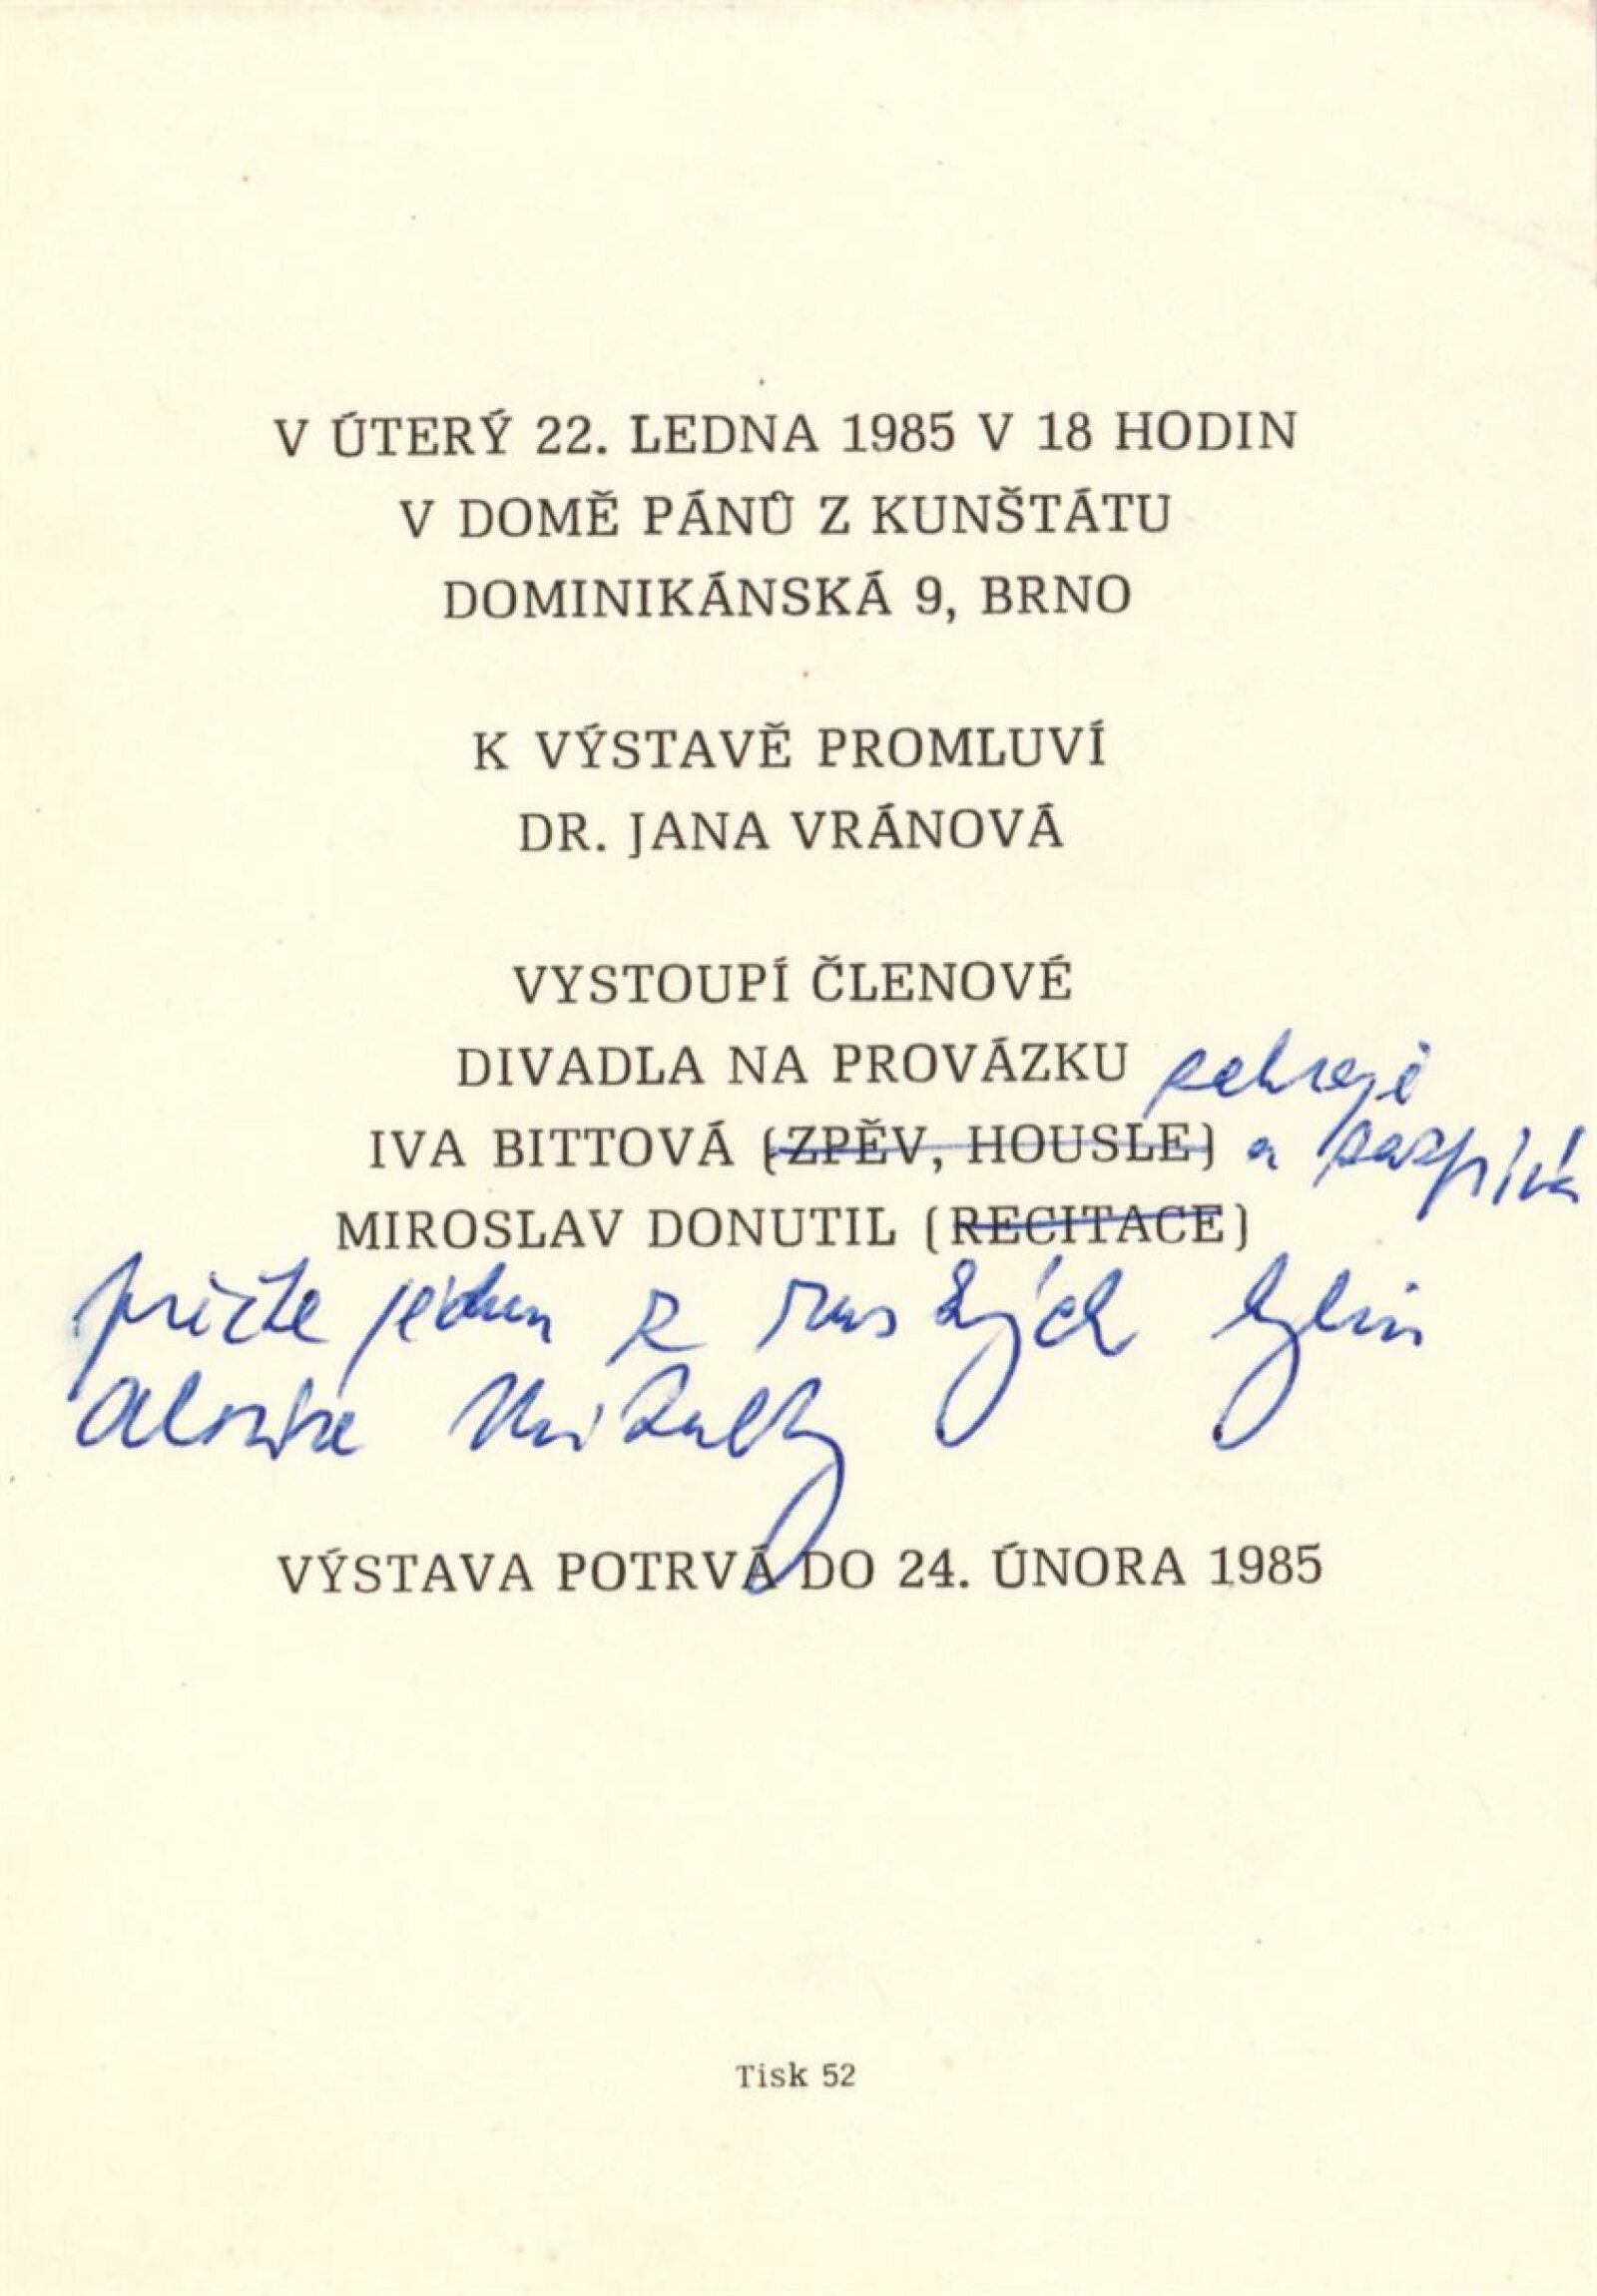 V ÚTERÝ 22. LEDNA 1985 V 18 HODIN
V DOMĚ PÁNŮ Z KUNŠTÁTU
DOMINIKÁNSKÁ 9, BRNO
K VÝSTAVĚ PROMLUVÍ
DR. JANA VRÁNOVÁ
VYSTOUPÍ ČLENOVÉ
DIVADLA NA PROVÁZKU zahraje
IVA BITTOVÁ (ZPĚV, HOUSLE) a zazpívá
MIROSLAV DONUTIL (RECITACE)
přečte jednu z ruských bylin
Aloise Mikulky
VÝSTAVA POTRVÁ DO 24. ÚNORA 1985
Tisk 52